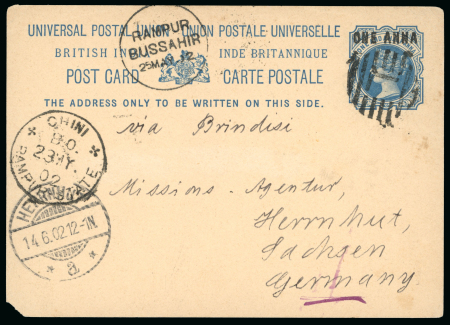 UNIVERSAL POSTAL UNION UNION POSTALE UNIVERSELLE
BRITISH INDIA INDE BRITANNIQUE
POST CARD CARTE POSTALE
THE ADDRESS ONLY TO BE WRITTEN ON THIS SIDE.
RAMPUR
BUSSAHIR
ONE ANNA
via Brindisi
CHINI
B.O.
23 MY.
02
RAMPUR STATE
Missions-Agentur,
Herrnhut,
Sachsen
Germany.
14.6.02.12-1N
* a *